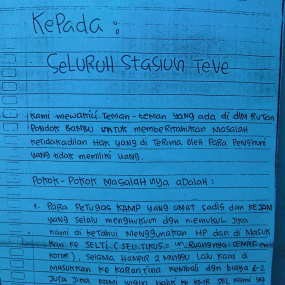 Kepada :
SeLURUH Stasiun Teve
Kami mewakili Teman-teman yang ada di dlm Rutan
Pondok Bambu untuk memberitahukan Masalah
ketidakadilan Hak yang di Terima oleh Para Penghuni
yang tidak memiliki uang.
Pokok-Pokok Masalahnya adalah :
1. Para Petugas KAMP yang amat sadis dan KEJAM
yang selalu menghukum dgn memukul Jika
kami di ketahui Menggunakan HP dan di Masuk
kan ke SELTI (SEL TIKUS = Ruangnya
kotor), selama Hampir 2 Minggu Lalu Kami d
Masukkan ke Karantina kembali dgn biaya
Juta Jika kami ingin